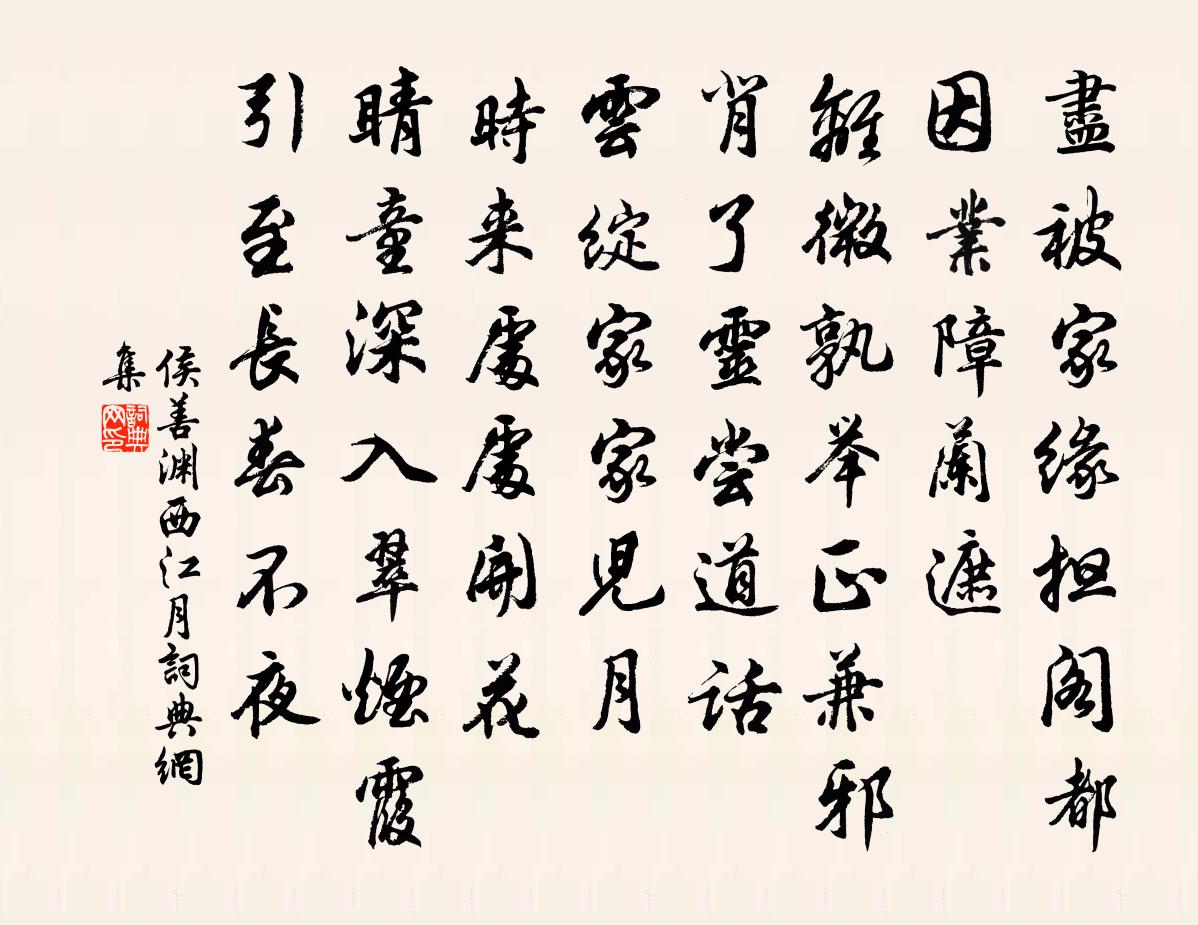 盡被家緣担阁都
因業障蘭遮
離微孰举正兼邪
肖了靈尝道話
雲綻家家児月
時来處處開花
晴童深入翠煙霞
引至長春不夜
侯善渊西江月詞典網
集
詞典网印